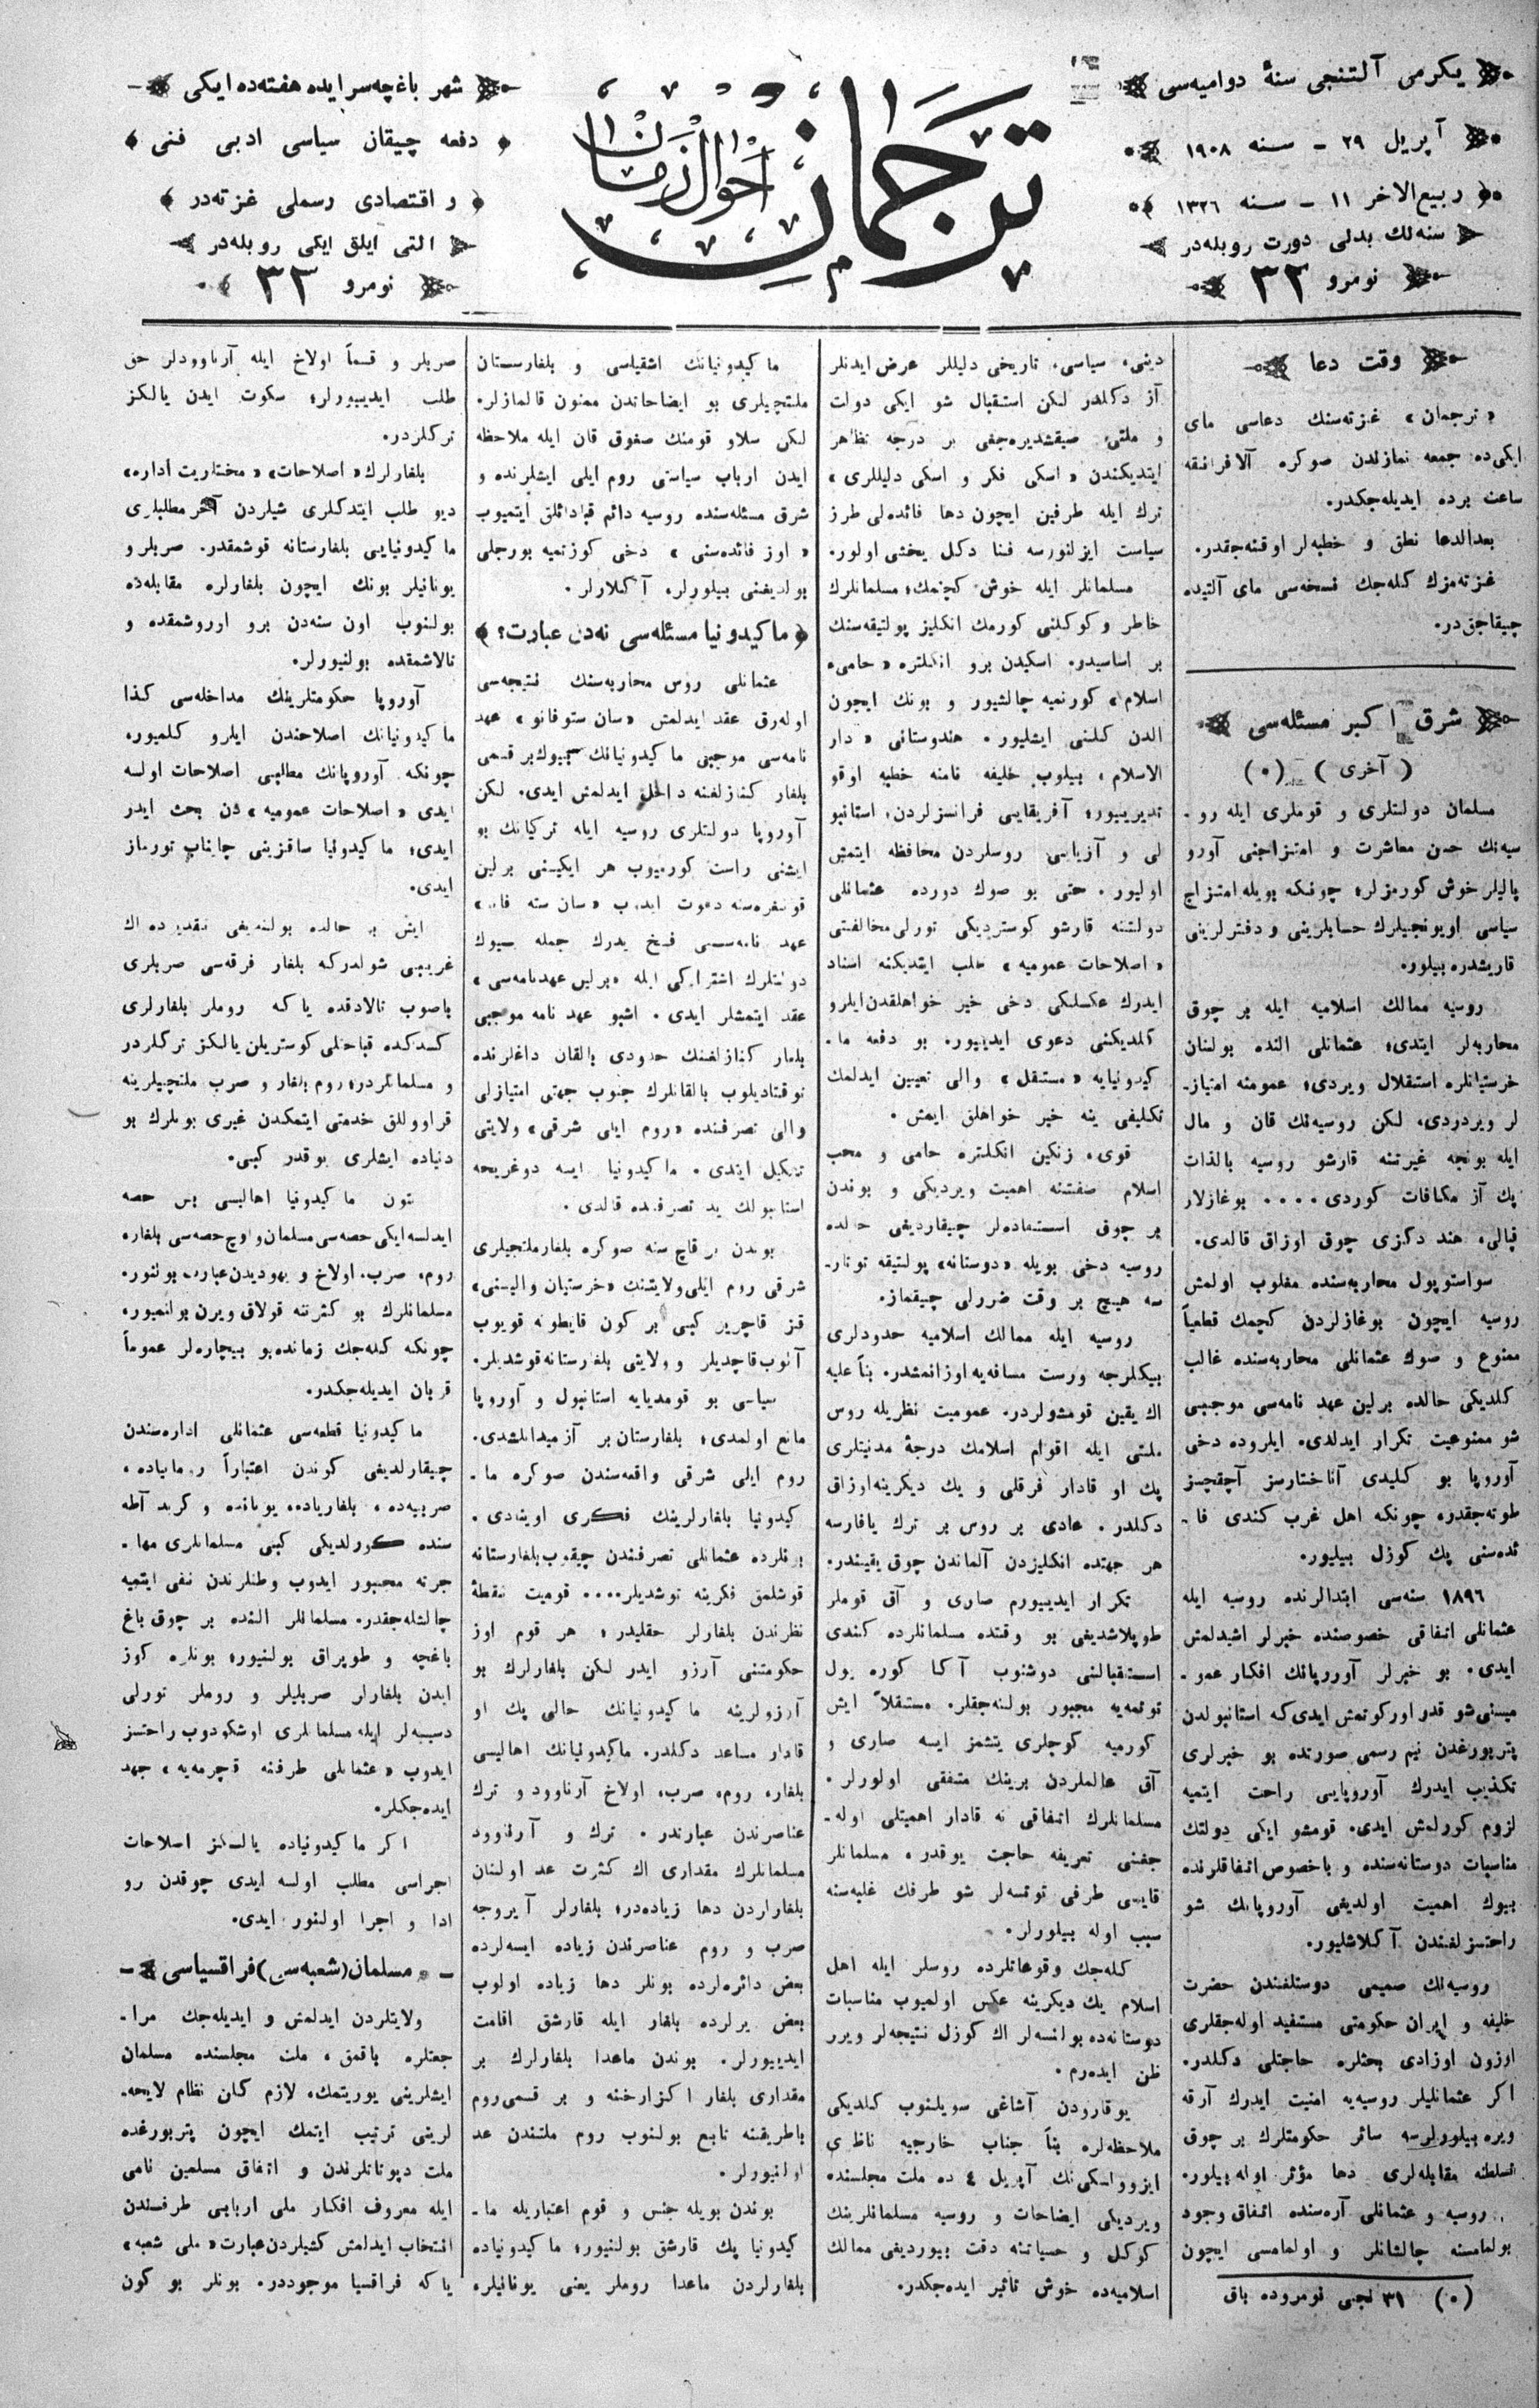 يكرمی آلتنجی سنهٔ دواميه‌سی
آپريل ٢٩ ـ سنه ١٩٠٨
ربيع الاخر ١١ ـ سنه ١٣٢٦
سنه‌لك بدلی دورت روبله‌در
نومرو ٣٣
ترجمان
احوال زمان
شهر باغچه‌سرايده هفته‌ده ايكی
دفعه چيقان سياسی ادبی فنی
و اقتصادی رسملی غزته‌در
التی ايلق ايكی روبله‌در
نومرو ٣٣
وقت دعا
« ترجمان » غزته‌سنك دعاسی مای
ايكی‌ده جمعه نمازلدن صوكره آلافرانقه
ساعت برده ايديله‌جكدر.
بعدالدعا نطق و خطبه‌لر اوقنه‌جقدر.
غزته‌مزك كله‌جك نسخه‌سی مای آلتيده
چيقاجق‌در.
شرق اكبر مسئله‌سی
( آخری ) (٠)
مسلمان دولتلری و قوملری ايله رو ـ
سيه‌نك حسن معاشرت و امتزاجنی آورو
پاليلر خوش كورمزلر؛ چونكه بويله امتزاج
سياسی اويونجيلرك حسابلرينی و دفترلرينی
قاريشدره بيلور.
روسيه ممالك اسلاميه ايله بر چوق
محاربه‌لر ايتدی؛ عثمانلی النده بولنان
خرستيانلره استقلال ويردی؛ عمومنه امتياز ـ
لر ويردردی، لكن روسيه‌نك قان و مال
ايله بونجه غيرتنه قارشو روسيه بالذات
پك آز مكافات كوردی .... بوغازلار
قپالی، هند دكزی چوق اوزاق قالدی.
سواستوپول محاربه‌سنده مغلوب اولمش
روسيه ايچون بوغازلردن كچمك قطعياً
ممنوع و صوك عثمانلی محاربه‌سنده غالب
كلديكی حالده برلين عهد نامه‌سی موجبی
شو ممنوعيت تكرار ايدلدی. ايلروده دخی
آوروپا بو كليدی آناختارسز آچقچسز
طوته‌جقدر، چونكه اهل غرب كندی فا ـ
ئده‌سنی پك كوزل بيليور.
١٨٩٦ سنه‌سی ابتدالرنده روسيه ايله
عثمانلی اتفاقی خصوصنده خبرلر اشيدلمش
ايدی. بو خبرلر آوروپانك افكار عمو ـ
ميسنی شو قدر اوركوتمش ايدی‌كه استانبولدن
پتربورغدن نيم رسمی صورتده بو خبرلری
تكذيب ايدرك آوروپايی راحت ايتميه
لزوم كورلمش ايدی. قومشو ايكی دولتك
مناسبات دوستانه‌سنده و باخصوص اتفاقلرنده
بيوك اهميت اولديغی آوروپانك شو
راحتسزلغندن آكلاشليور.
روسيه‌نك صميمی دوستلغندن حضرت
خليفه و ايران حكومتی مستفيد اوله‌جقلری
اوزون اوزادی بحثلره حاجتلی دكلدر.
اكر عثمانليلر روسيه‌يه امنيت ايدرك آرقه
ويره بيلورلرسه سائر حكومتلرك بر چوق
تسلطنه مقابله‌لری دها مؤثر اوله بيلور.
روسيه و عثمانلی آره‌سنده اتفاق وجود
بولمامسنه چالشانلر و اولمامسی ايچون
(٠) ٣١ نجی نومروده باق
دينی، سياسی، تاريخی دليللر عرض ايدنلر
آز دكلدر لكن استقبال شو ايكی دولت
و ملتی صيقشديره‌جغی بر درجه تظاهر
ايتديكندن « اسكی فكر و اسكی دليللری »
ترك ايله طرفين ايچون دها فائده‌لی طرز
سياست ايزلنورسه فنا دكل يخشی اولور.
مسلمانلر ايله خوش كچنمك؛ مسلمانلرك
خاطر و كوكلنی كورمك انكليز پولتيقه‌سنك
بر اساسيدر. اسكيدن برو انكلتره « حامی
اسلام » كورنميه چالشيور و بونك ايچون
الدن كلنی ايشليور. هندوستانی « دار
الاسلام » بيلوب خليفه نامنه خطبه اوقو
تديرييور؛ آفريقايی فرانسزلردن، استانبو
لی و آزيايی روسلردن محافظه ايتمش
اوليور. حتی بو صوك دورده عثمانلی
دولتنه قارشو كوسترديكی تورلی مخالفتی
« اصلاحات عموميه » طلب ايتديكنه اسناد
ايدرك عكسلكی دخی خير خواهلقدن ايلرو
كلديكنی دعوی ايدييور. بو دفعه ما ـ
كيدونيايه « مستقل » والی تعيين ايدلمك
تكليفی ينه خير خواهلق ايمش.
قوی، زنكين انكلتره حامی و محب
اسلام صفتنه اهميت ويرديكی و بوندن
بر چوق استفاده‌لر چيقارديغی حالده
روسيه دخی بويله « دوستانه » پولتيقه توتار ـ
سه هيچ بر وقت ضررلی چيقماز.
روسيه ايله ممالك اسلاميه حدودلری
بيكلرجه ورست مسافه‌يه اوزانمشدر. بناً عليه
اك يقين قومشولردر. عموميت نظريله روس
ملتی ايله اقوام اسلامك درجهٔ مدنيتلری
پك او قادار فرقلی و يك ديكرينه اوزاق
دكلدر. عادی بر روس بر ترك يافارسه
هر جهتده انكليزدن آلماندن چوق يقيندر.
تكرار ايدييورم صاری و آق قوملر
طوپلاشديغی بو وقتده مسلمانلرده كندی
استقبالنی دوشنوب آكا كوره يول
توتمه‌يه مجبور بولنه‌جقلر. مستقلاً ايش
كورميه كوچلری يتشمز ايسه صاری و
آق عالملردن برينك متفقی اولورلر.
مسلمانلرك اتفاقی نه قادار اهميتلی اوله ـ
جغنی تعريفه حاجت يوقدر، مسلمانلر
قايسی طرفی توتسه‌لر شو طرفك غلبه‌سنه
سبب اوله بيلورلر.
كله‌جك وقوعاتلرده روسلر ايله اهل
اسلام يك ديكرينه عكس اولميوب مناسبات
دوستانه‌ده بولنسه‌لر اك كوزل نتيجه‌لر ويرر
ظن ايده‌رم.
يوقارودن آشاغی سويلنوب كلديكی
ملاحظه‌لره بناً جناب خارجيه ناظری
ايزوولسكی‌نك آپريل ٤ ده ملت مجلسنده
ويرديكی ايضاحات و روسيه مسلمانلرينك
كوكل و حسياتنه دقت بيورديغی ممالك
اسلاميه‌ده خوش تاثير ايده‌جكدر.
ماكيدونيانك اشقياسی و بلغارستان
ملتچيلری بو ايضاحاتدن ممنون قالمازلر.
لكن سلاو قومنك صغوق قان ايله ملاحظه
ايدن ارباب سياستی روم ايلی ايشلرنده و
شرق مسئله‌سنده روسيه دائم قبادائلق ايتميوب
« اوز فائده‌سنی » دخی كوزتميه بورجلی
بولديغنی بيلورلر، آكلارلر.
ماكيدونيا مسئله‌سی نه‌دن عبارت؟
عثمانلی روس محاربه‌سنك نتيجه‌سی
اوله‌رق عقد ايدلمش « سان ستوفانو » عهد
نامه‌سی موجبی ماكيدونيانك بيوك بر قسمی
بلغار كنازلغنه داخل ايدلمش ايدی. لكن
آوروپا دولتلری روسيه ايله تركيانك بو
ايشنی راست كورميوب هر ايكيسنی برلين
قونغره‌سنه دعوت ايدوب « سان سته فانو »
عهد نامه‌سی فسخ يدرك جمله بيوك
دولتلرك اشتراكی ايله « برلين عهدنامه‌سی »
عقد ايتمشلر ايدی. اشبو عهد نامه موجبی
بلغار كنازلغنك حدودی بالقان داغلرنده
توقتاديلوب بالقانلرك جنوب جهتی امتيازلی
والی تصرفنده « روم ايلی شرقی » ولايتی
تشكيل ايتدی. ماكيدونيا ايسه دوغريجه
استانبولك يد تصرفنده قالدی.
بوندن بر قاچ سنه صوكره بلغار ملتجيلری
شرقی روم ايلی ولايتنك « خرستيان واليسنی »
قز قاچرير كبی بر كون قايطونه قويوب
آلوب قاچديلر و ولايتی بلغارستانه قوشديلر.
سياسی بو قومديايه استانبول و آوروپا
مانع اولمدی؛ بلغارستان بر آز ميدانلشدی.
روم ايلی شرقی واقعه‌سندن صوكره ما ـ
كيدونيا بلغارلرينك فكری اويندی.
بونلرده عثمانلی تصرفندن چيقوب بلغارستانه
قوشلمق فكرينه توشديلر.... قوميت نقطهٔ
نظرندن بلغارلر حقليدر؛ هر قوم اوز
حكومتنی آرزو ايدر لكن بلغارلرك بو
آرزولرينه ماكيدونيانك حالی پك او
قادار مساعد دكلدر. ماكيدونيانك اهاليسی
بلغار، روم، صرب، اولاخ آرناوود و ترك
عناصرندن عبارتدر. ترك و آرناوود
مسلمانلرك مقداری اك كثرت عد اولنان
بلغارلردن دها زياده‌در؛ بلغارلر آيروجه
صرب و روم عناصرندن زياده ايسه‌لرده
بعض دائره‌لرده بونلر دها زياده اولوب
بعض يرلرده بلغار ايله قارشق اقامت
ايدييورلر. بوندن ماعدا بلغارلرك بر
مقداری بلغار اكزارخنه و بر قسمی روم
باطريقنه تابع بولنوب روم ملتندن عد
اولنيورلر.
بوندن بويله جنس و قوم اعتباريله ما ـ
كيدونيا پك قارشق بولنيور؛ ماكيدونياده
بلغارلردن ماعدا روملر يعنی يونانيلر،
صربلر و قسماً اولاخ ايله آرناوودلر حق
طلب ايدييورلر؛ سكوت ايدن يالكز
تركلردر.
بلغارلرك « اصلاحات » « مختاريت اداره »
ديو طلب ايتدكلری شيلردن آخر مطلبلری
ماكيدونيايی بلغارستانه قوشمقدر. صربلر و
يونانيلر بونك ايچون بلغارلره مقابله‌ده
بولنوب اون سنه‌دن برو اوروشمقده و
تالاشمقده بولنيورلر.
آوروپا حكومتلرينك مداخله‌سی كذا
ماكيدونيانك اصلاحندن ايلرو كلميور،
چونكه آوروپانك مطلبی اصلاحات اولسه
ايدی « اصلاحات عموميه » دن بحث ايدر
ايدی؛ ماكيدونيا ساقزينی چايناپ تورماز
ايدی.
ايش بو حالده بولنديغی تقديرده اك
غريبی شولدركه بلغار فرقه‌سی صربلری
باصوب تالادقده ياكه روملر بلغارلری
كسدكده قباحتلی كوستريلن يالكز تركلردر
و مسلمانلردر؛ روم بلغار و صرب ملتچيلرينه
قراووللق خدمتی ايتمكدن غيری بونلرك بو
دنياده ايشلری بوقدر كبی.
بتون ماكيدونيا اهاليسی بش حصه
ايدلسه ايكی حصه‌سی مسلمان و اوچ حصه‌سی بلغار،
روم، صرب، اولاخ و يهوديدن عبارت بولنور.
مسلمانلرك بو كثرتنه قولاق ويرن بولنميور،
چونكه كله‌جك زمانده بو بيچاره‌لر عموماً
قربان ايديله‌جكدر.
ماكيدونيا قطعه‌سی عثمانلی اداره‌سندن
چيقارلديغی كوندن اعتباراً رومانياده،
صربيه‌ده، بلغارياده، يونانده و كريد آطه
سنده كورلديكی كبی مسلمانلری مها ـ
جرته مجبور ايدوب وطنلرندن نفی ايتميه
چالشله‌جقدر. مسلمانلر النده بر چوق باغ
باغچه و طوپراق بولنيور؛ بونلره كوز
ايدن بلغارلر صربليلر و روملر تورلی
دسيسه‌لر ايله مسلمانلری اوشكودوب راحتسز
ايدوب « عثمانلی طرفنه قچرمه‌يه » جهد
ايده‌جكلر.
اكر ماكيدونياده يالكز اصلاحات
اجراسی مطلب اولسه ايدی چوقدن رو
ادا و اجرا اولنور ايدی.
مسلمان (شعبه‌سی) فراقسياسی
ولايتلردن ايدلمش و ايديله‌جك مرا ـ
جعتلره باقمق، ملت مجلسنده مسلمان
ايشلرينی يوريتمك، لازم كلن نظام لايحه ـ
لرينی ترتيب ايتمك ايچون پتربورغده
ملت دپوتاتلرندن و اتفاق مسلمين نامی
ايله معروف افكار ملی اربابی طرفندن
انتخاب ايدلمش كشيلردن عبارت « ملی شعبه »
ياكه فراقسيا موجوددر. بونلر بو كون